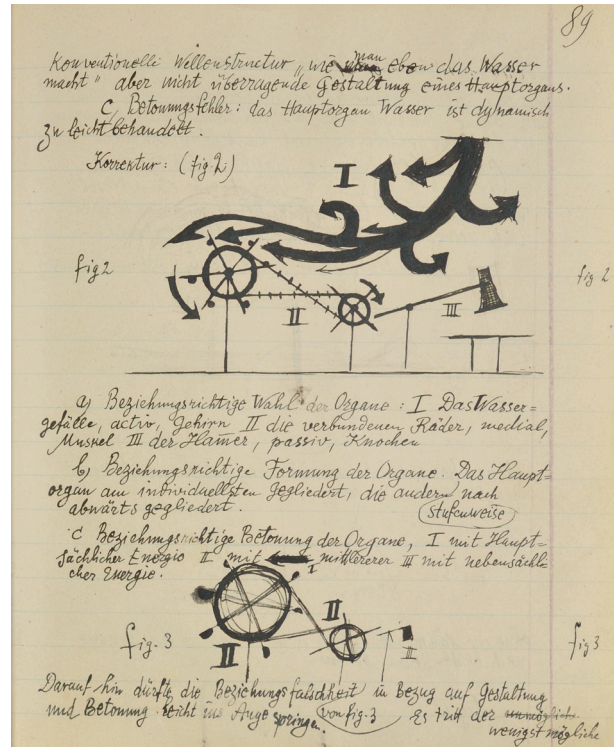 89
Konventionelle Wellenstructur „wie man eben das Wasser
macht" aber nicht überragende Gestaltung eines Hauptorgans.
C, Betonungsfehler: das Hauptorgan Wasser ist dynamisch
zu leicht behandelt.
Korrektur: (fig 2)
I
fig 2
II
III
fig 2
a) Beziehungsrichtige Wahl der Organe: I Das Wasser=
gefälle, activ, Gehirn II die verbundenen Räder, medial,
Muskel III der Hamer, passiv, Knochen
b) Beziehungsrichtige Formung der Organe. Das Haupt=
organ am individuellsten gegliedert, die andern nach
abwärts gegliedert. stufenweise
C Beziehungsrichtige Betonung der Organe, I mit Haupt=
sächlicher Energie II mit mittlerer III mit nebensächli=
cher Energie.
I
II
fig. 3
II
III
fig 3
Darauf hin dürfte die Beziehungsfalschheit in Bezug auf Gestaltung
und Betonung leicht ins Auge springen. von fig. 3 Es tritt der
wenigst mögliche